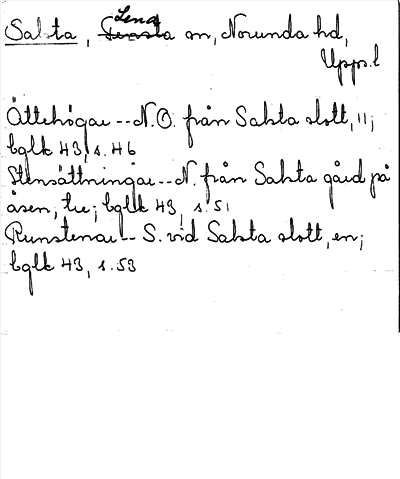 Salsta, Lena sn, Norunda hd,
Upps. l
Ättehögar -- N.O. från Salsta slott, 11;
bglk 43, s. 46
Stensättningar -- N. från Salsta gård på
åsen, tre; bglk 43, s. 51
Runstenar -- S. vid Salsta slott, en;
bglk 43, s. 53